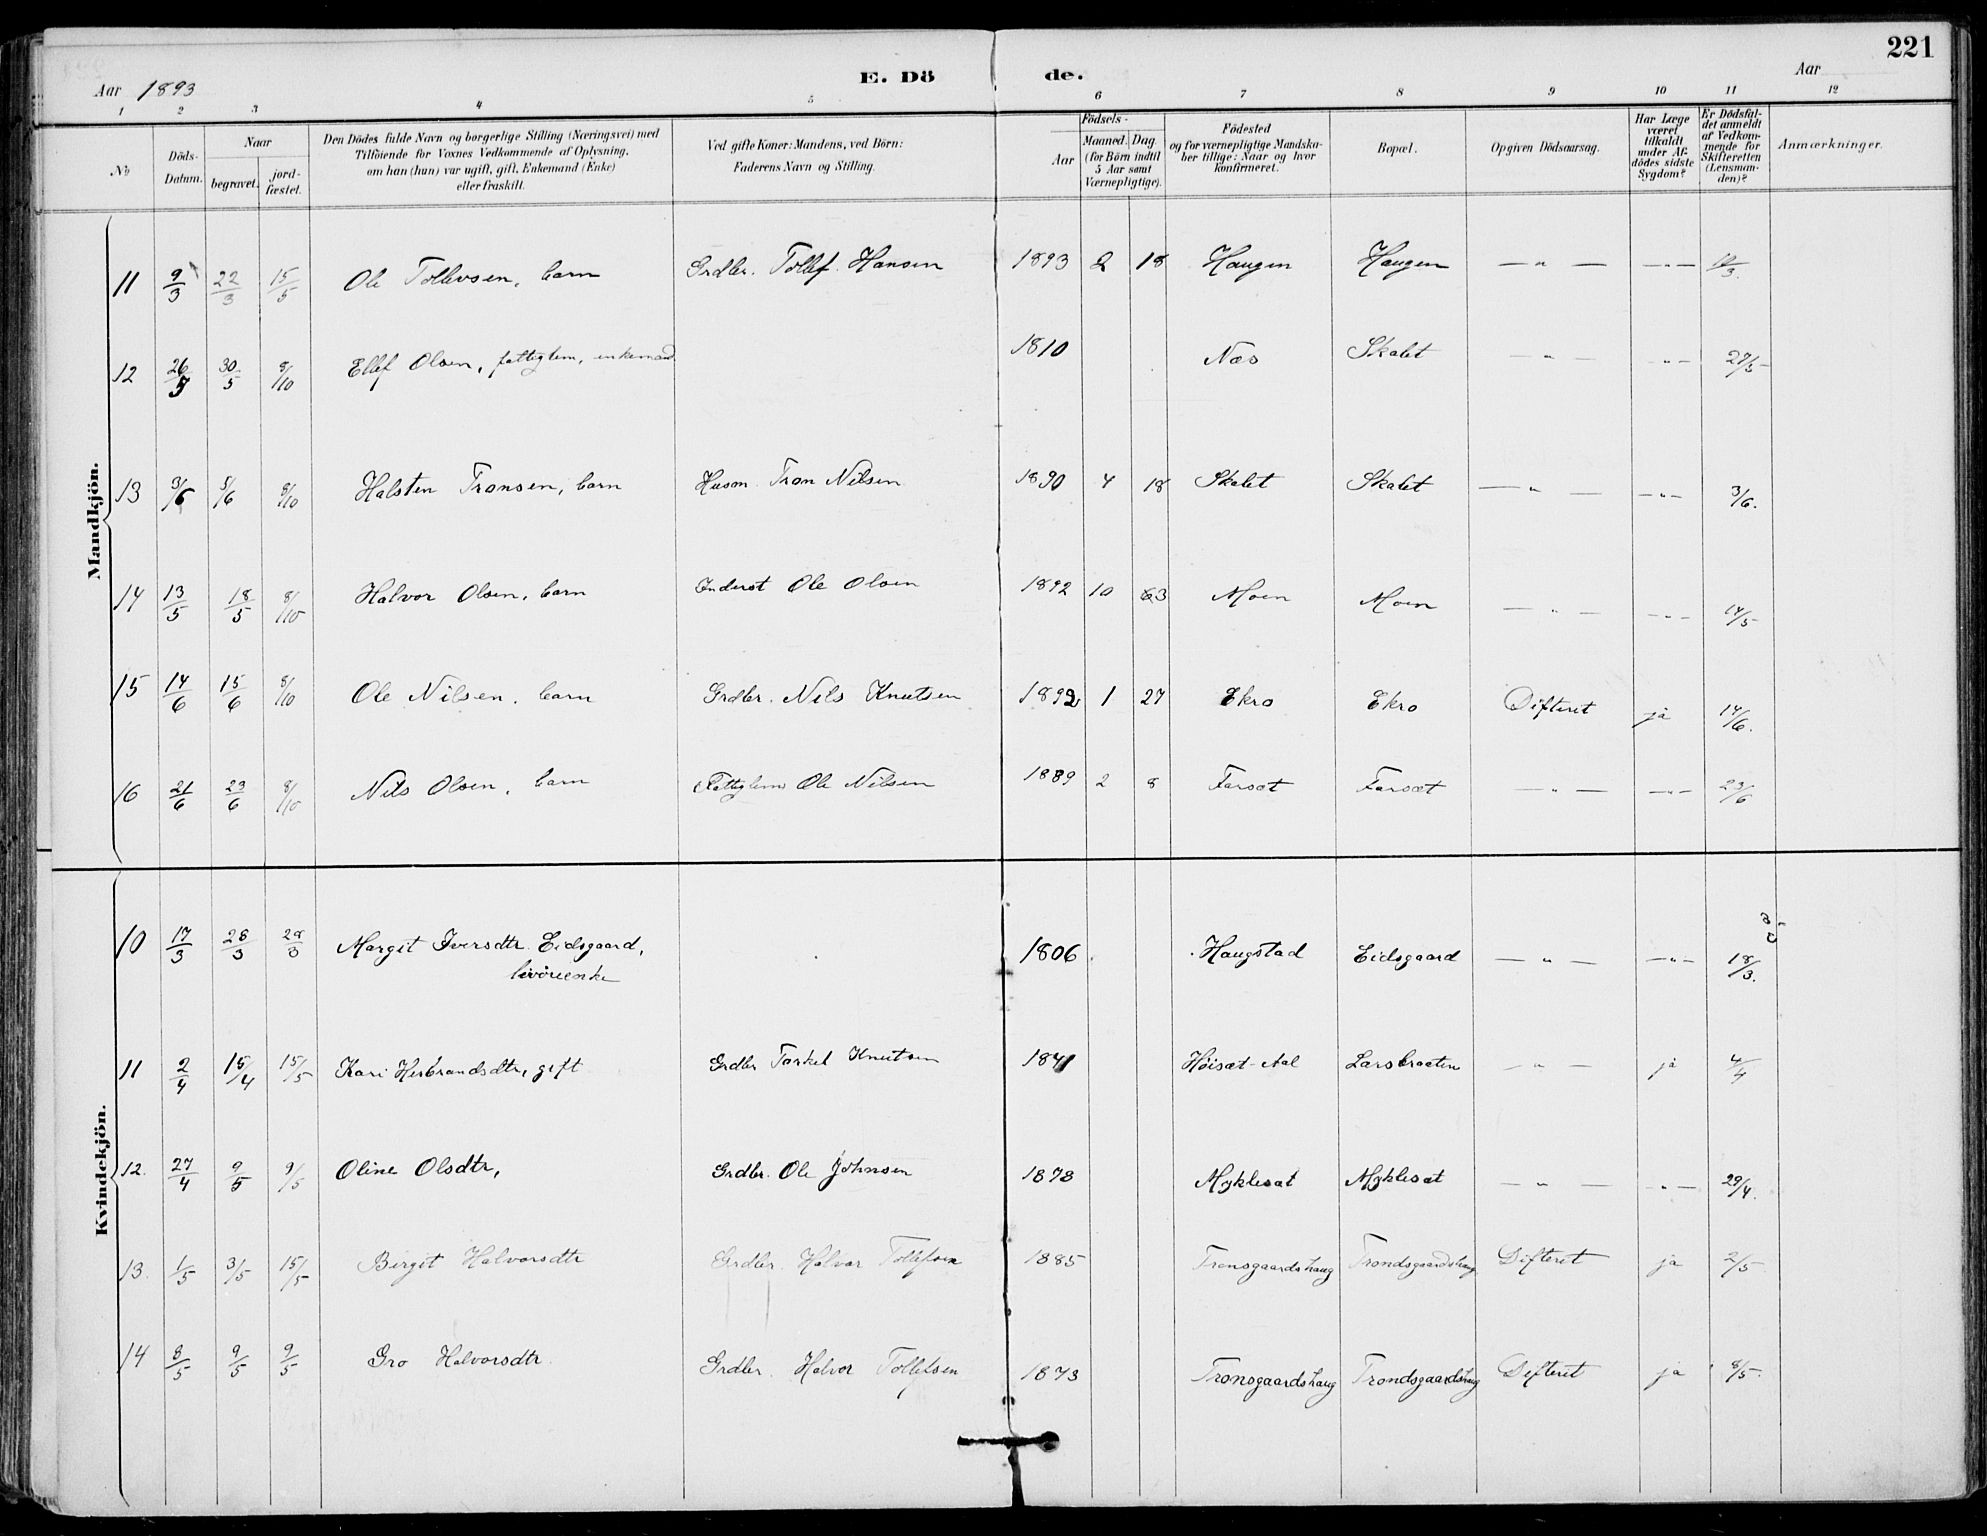 221
E. Dö de.
Aar 1893
Aar
1 2 3 4 5 6 7 8 9 10 11 12
No
Döds-Datum.
Naar
begravet.
jord-fæstet.
Den Dödes fulde Navn og borgerlige Stilling (Næringsvei) med
Tilföiende for Voxnes Vedkommende af Oplysning,
om han (hun) var ugift, gift, Enkemand (Enke)
eller fraskilt.
Ved gifte Koner: Mandens, ved Börn:
Faderens Navn og Stilling.
Födsels-
Aar
Maaned. Dag.
(for Börn indtil
5 Aar samt
Værnepligtige).
Födested
og for værnepligtige Mandska-
ber tillige: Naar og hvor
konfirmeret.
Bopæl.
Opgiven Dödsaarsag.
Har Læge
været
tilkaldt
under Af-
dödes sidste
Sygdom?
Er Dödsfal-
det anmeldt
af Vedkom-
mende for
Skifteretten
(Lensman-
den)?
Anmærkninger.
Mandkjön.
11 9/3 22/3 15/5 Ole Tollevsen, barn Grdbr. Tollef Hansen 1893 2 18 Haugen Haugen — " — — " —
12 26/5 30/5 8/10 Ellef Olsen, fattiglem, enkemand 1810 Næs Skalet — " — — " — 27/5
13 3/6 5/6 8/10 Halsten Tronsen, barn Husm. Tron Nilsen 1890 4 18 Skalet Skalet — " — — " — 3/6.
14 13/5 18/5 8/10 Halvor Olsen, barn Inderst Ole Olsen 1892 10 Moen Moen — " — — " — 14/5
15 14/6 15/6 8/10 Ole Nilsen, barn Grdbr. Nils Knutsen 1892 1 27 Ekro Ekro Difterit ja 14/6.
16 21/6 23/6 8/10 Nils Olsen, barn Fattiglem Ole Nilsen 1889 2 8 Farsæt Farsæt — " — — " — 23/6
Kvindekjön.
10 17/3 28/3 28/3 Margit Iversdtr. Eidsgaard, 1806 Haugstad Eidsgaard — " — — " — 18/3.
11 2/4 15/4 15/5 Kari Herbrandsdtr, gift Grdbr Torkel Knutsen 1841 Höisæt - Aal Larsbraaten — " — ja 4/4
12. 27/4 9/5 9/5 Oline Olsdtr, Grdbr. Ole Johnsen 1878 Myklesæt Myklesæt — " — — " — 29/4.
13. 1/5 3/5 15/5 Birgit Halvorsdtr Grdbr. Halvor Tollefsen 1885 Tronsgaardshaug Trondsgaardshaug Difterit ja 2/5
14 8/5 9/5 9/5 Gro Halvorsdtr. Grdbr. Halvor Tollefsen 1873 Tronsgaardshaug Trondsgaardshaug Difterit ja 8/5.